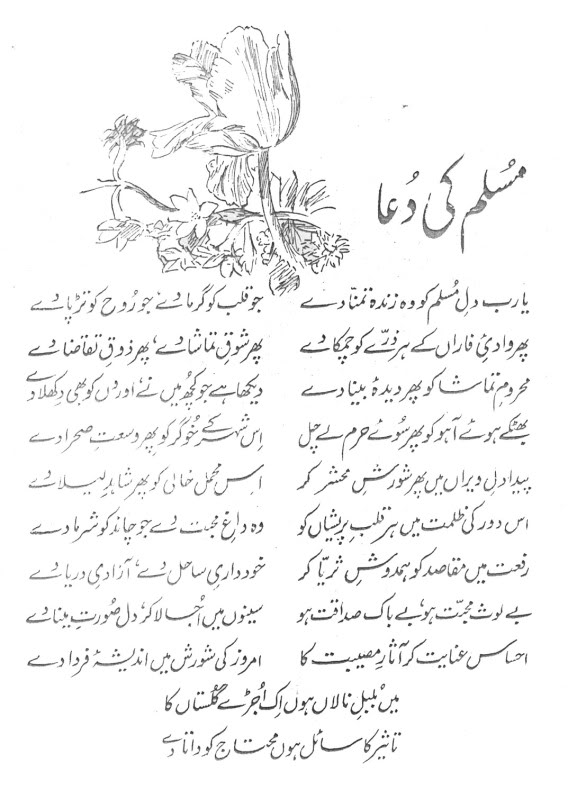 مُسلم کی دُعا
یارب دلِ مُسلم کو وہ زندہ تمنّا دے جو قلب کو گرما دے، جو رُوح کو تڑپا دے
پھر وادیِٔ فاراں کے ہر ذرّے کو چمکا دے پھر شوقِ تماشا دے، پھر ذوقِ تقاضا دے
محرومِ تماشا کو پھر دیدۂ بینا دے دیکھا ہے جو کچھ میں نے اوروں کو بھی دِکھلا دے
بھٹکے ہوئے آہو کو پھر سُوئے حرم لے چل اِس شہر کے خُوگر کو پھر وسعتِ صحرا دے
پیدا دلِ ویراں میں پھر شورشِ محشر کر اس محملِ خالی کو پھر شاہدِ لیلا دے
اس دور کی ظلمت میں ہر قلبِ پریشاں کو وہ داغِ محبت دے جو چاند کو شرما دے
رفعت میں مقاصد کو ہمدوشِ ثریّا کر خودداریِ ساحل دے، آزادیِ دریا دے
بے لوث محبّت ہو، بے باک صداقت ہو سینوں میں اُجالا کر، دل صُورتِ مینا دے
احساس عنایت کر آثارِ مصیبت کا امروز کی شورش میں اندیشۂ فردا دے
میں بُلبلِ نالاں ہوں اِک اُجڑے گُلستاں کا
تاثیر کا سائل ہوں محتاج کو داتا دے